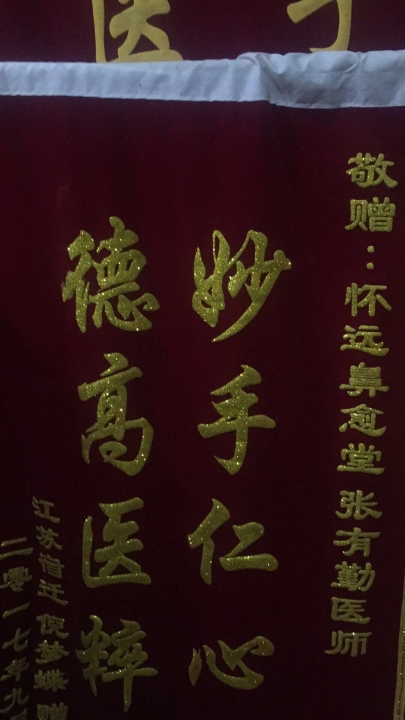 敬赠：怀远鼻愈堂张有勤医师
妙手仁心
德高医粹
江苏宿迁倪梦蝶赠
二零一七年九
医